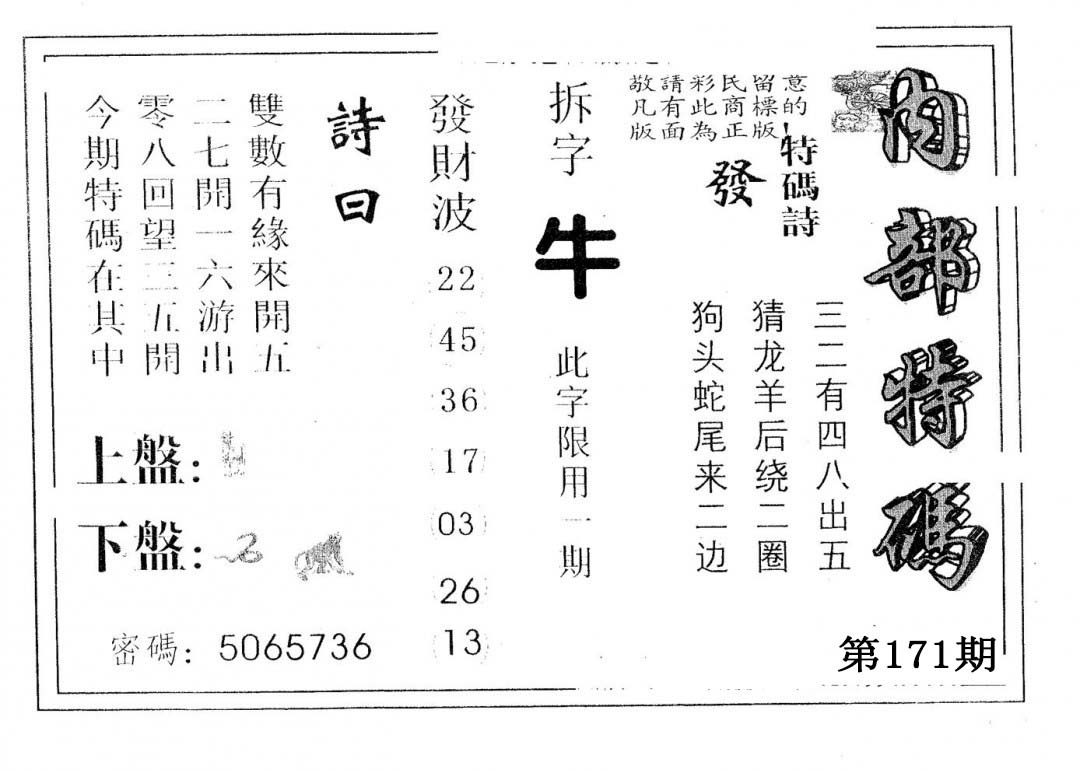 內部特碼
第171期
敬請彩民留意
凡有此商標的
版面為正版
特碼詩
發
三二有四八出五
猜龙羊后绕二圈
狗头蛇尾来二边
拆字
牛
此字限用一期
發財波
22
45
36
17
03
26
13
詩曰
雙數有緣來開五
二七開一六游出
零八回望三五開
今期特碼在其中
上盤:
下盤:
密碼: 5065736